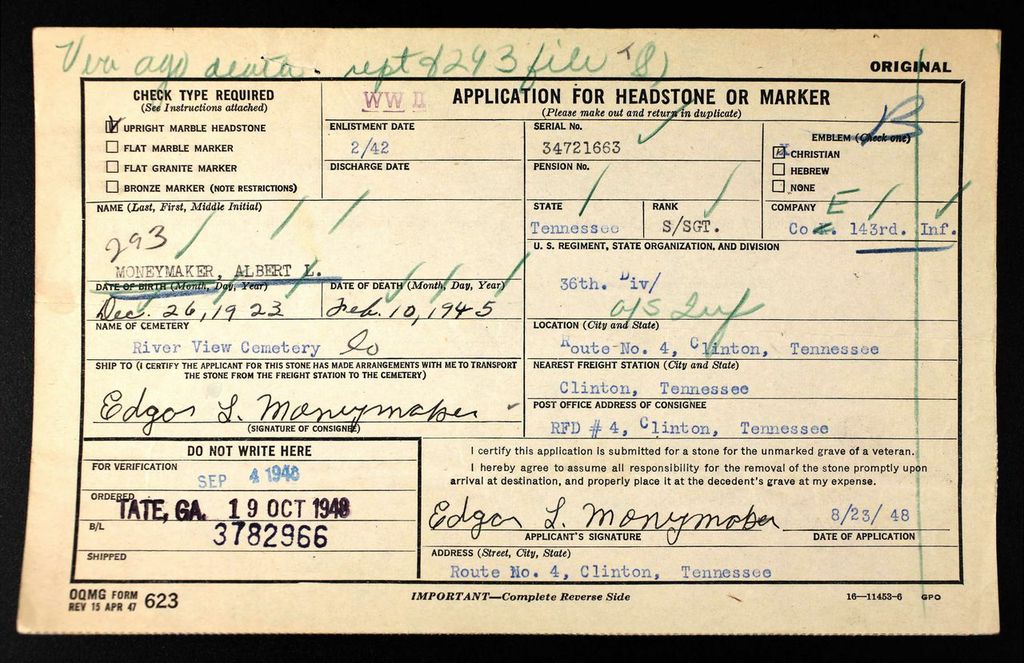 Ver ago death. rept 8293 file
ORIGINAL
CHECK TYPE REQUIRED
(See Instructions attached)
UPRIGHT MARBLE HEADSTONE
FLAT MARBLE MARKER
FLAT GRANITE MARKER
BRONZE MARKER (NOTE RESTRICTIONS)
WW II APPLICATION FOR HEADSTONE OR MARKER
(Please make out and return in duplicate)
ENLISTMENT DATE
2/42
DISCHARGE DATE
SERIAL No.
34721663
PENSION No.
EMBLEM (Check one) B
X CHRISTIAN
HEBREW
NONE
NAME (Last, First, Middle Initial)
293
MONEYMAKER, ALBERT L.
STATE
Tennessee
RANK
S/SGT.
COMPANY E
Co. 143rd. Inf.
U. S. REGIMENT, STATE ORGANIZATION, AND DIVISION
36th. Div/
o/s Inf
DATE OF BIRTH (Month, Day, Year)
Dec. 26, 1923
DATE OF DEATH (Month, Day, Year)
Feb. 10, 1945
NAME OF CEMETERY
River View Cemetery
LOCATION (City and State)
Route No. 4, Clinton, Tennessee
SHIP TO (I CERTIFY THE APPLICANT FOR THIS STONE HAS MADE ARRANGEMENTS WITH ME TO TRANSPORT
THE STONE FROM THE FREIGHT STATION TO THE CEMETERY)
Edgar L. Moneymaker
(SIGNATURE OF CONSIGNEE)
NEAREST FREIGHT STATION (City and State)
Clinton, Tennessee
POST OFFICE ADDRESS OF CONSIGNEE
RFD # 4, Clinton, Tennessee
DO NOT WRITE HERE
FOR VERIFICATION
SEP 4 1948
ORDERED
TATE, GA. 19 OCT 1948
B/L
3782966
SHIPPED
I certify this application is submitted for a stone for the unmarked grave of a veteran.
I hereby agree to assume all responsibility for the removal of the stone promptly upon
arrival at destination, and properly place it at the decedent's grave at my expense.
Edgar L. Moneymaker 8/23/ 48
APPLICANT'S SIGNATURE DATE OF APPLICATION
ADDRESS (Street, City, State)
Route No. 4, Clinton, Tennessee
OQMG FORM
REV 15 APR 47 623
IMPORTANT—Complete Reverse Side
16—11453-6 GPO